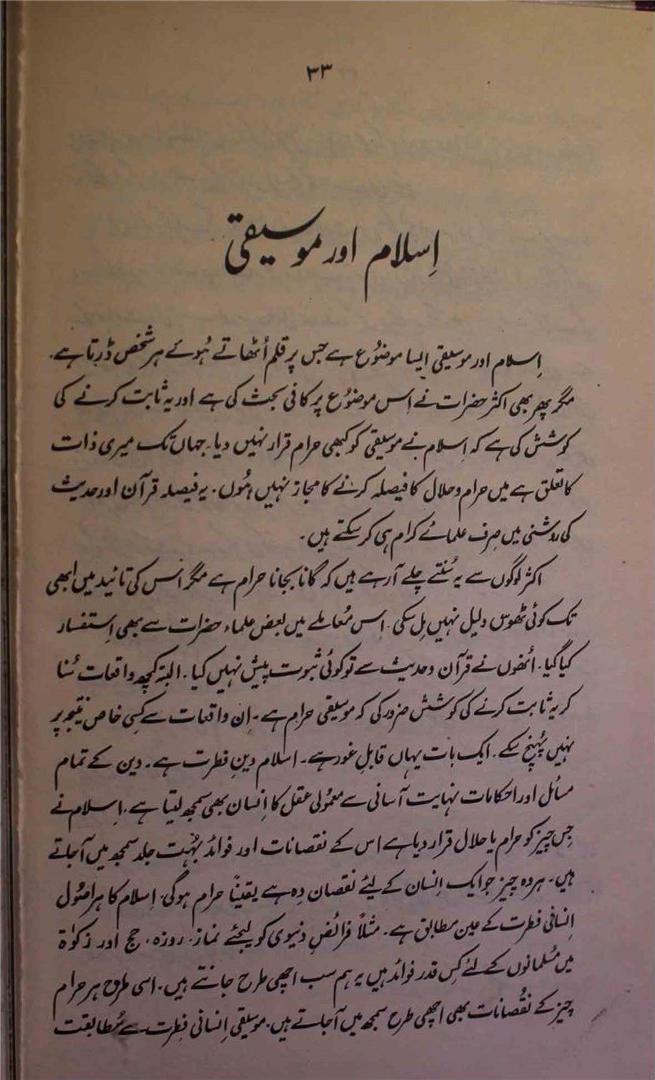 ۳۳
اِسلام اور موسیقی
اِسلام اور موسیقی ایسا موضوُع ہے جس پر قلم اُٹھاتے ہُوئے ہر شخص ڈرتا ہے۔
مگر پھر بھی اکثر حضرات نے اِس موضوُع پر کافی بحث کی ہے اور یہ ثابت کرنے کی
کوشش کی ہے کہ اِسلام نے موسیقی کو کبھی حرام قرار نہیں دیا۔ جہاں تک میری ذات
کا تعلق ہے میں حرام و حلال کا فیصلہ کرنے کا مجاز نہیں ہُوں۔ یہ فیصلہ قرآن اور حدیث
کی روشنی میں صِرف علمائے کرام ہی کر سکتے ہیں۔
اکثر لوگوں سے یہ سُنتے چلے آ رہے ہیں کہ گانا بجانا حرام ہے مگر اس کی تائید میں ابھی
تک کوئی ٹھوس دلیل نہیں مِل سکی۔ اِس مُعاملے میں بعض علماء حضرات سے بھی اِستفسار
کیا گیا۔ اُنھوں نے قرآن و حدیث سے تو کوئی ثبوت پیش نہیں کیا۔ البتہ کچھ واقعات سُنا
کر یہ ثابت کرنے کی کوشش ضرور کی کہ موسیقی حرام ہے۔ اِن واقعات سے کِسی خاص نتیجہ پر
نہیں پہُنچ سکے۔ ایک بات یہاں قابلِ غور ہے۔ اسلام دینِ فطرت ہے۔ دین کے تمام
مسائل اور احکامات نہایت آسانی سے معمولی عقل کا اِنسان بھی سمجھ لیتا ہے۔ اِسلام نے
جِس چیز کو حرام یا حلال قرار دیا ہے اس کے نقصانات اور فوائد بہُت جلد سمجھ میں آ جاتے
ہیں۔ ہر وہ چیز جو ایک اِنسان کے لیئے نقصان دِہ ہے یقیناً حرام ہو گی۔ اِسلام کا ہر اصُول
اِنسانی فطرت کے عین مطابق ہے۔ مثلاً فرائضِ دُنیوی کو لیجئے نماز، روزہ، حج اور زکوٰۃ
میں مُسلمانوں کے لئے کِس قدر فوائد ہیں یہ ہم سب اچھی طرح جانتے ہیں۔ اسی طرح ہر حرام
چیز کے نقُصانات بھی اچھی طرح سمجھ میں آ جاتے ہیں۔ موسیقی اِنسانی فِطرت سے مُطابقت